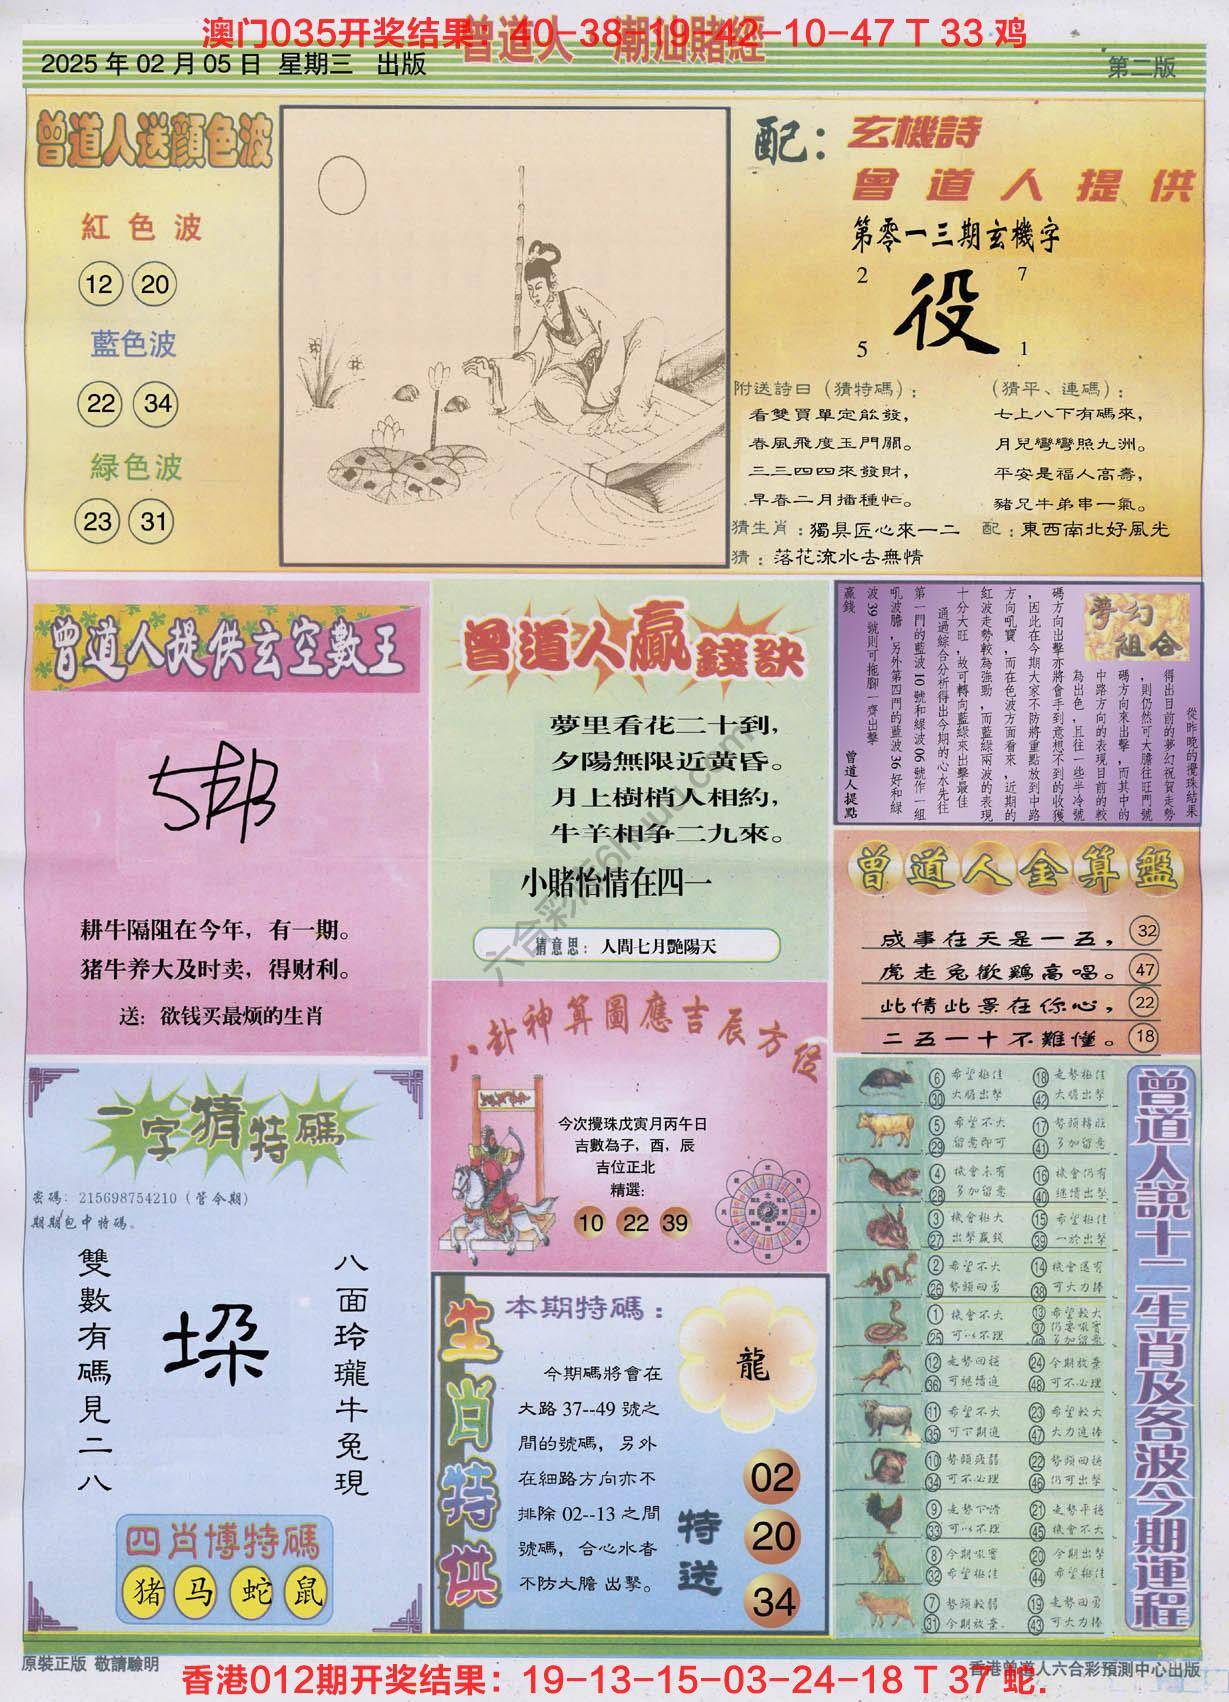 澳门035开奖结果：40-38-19-42-10-47 T 33 鸡
曾道人 潮汕賭經
2025 年 02 月 05 日 星期三 出版
第二版
曾道人送顔色波
紅色波
12 20
藍色波
22 34
緑色波
23 31
配：玄機詩
曾道人提供
第零一三期玄機字
2 7
役
5 1
附送詩曰（猜特碼）：
看雙買單定能發，
春風飛度玉門關。
三三四四來發財，
早春二月播種忙。
（猜平、連碼）：
七上八下有碼來，
月兒彎彎照九洲。
平安是福人高壽，
豬兄牛弟串一氣。
猜生肖：獨具匠心來一二
配：東西南北好風光
猜：落花流水去無情
曾道人提供玄空數王
耕牛隔阻在今年，有一期。
猪牛养大及时卖，得财利。
送：欲钱买最烦的生肖
曾道人贏錢訣
夢里看花二十到，
夕陽無限近黃昏。
月上樹梢人相約，
牛羊相争二九來。
小賭怡情在四一
猜意思：人間七月艷陽天
夢幻組合
從昨晚的攪珠結果
得出目前的夢幻祝賀走勢
，則仍然可大膽往旺門號
碼方向來出擊，而其中的
中路方向的表現目前的較
為出色，且往一些半冷號
碼方向出擊亦將會手到意想不到的收獲
，因此在今期大家不防將重點放到中路
方向吼寶，而在色波方面看來，近期的
紅波走勢較為強勁，而藍綠兩波的表現
十分大旺，故可轉向藍綠來出擊最佳
通過綜合分析得出今期的心水先往
第一門的藍波 10 號和綠波 06 號作一組
吼波膽，另外第四門的藍波 36 好和綠
波 39 號則可拖腳一齊出擊
贏錢
曾道人提點
曾道人金算盤
成事在天是一五， 32
虎走兔歡鷄高唱。 47
此情此景在你心， 22
二五一十不難懂。 18
八卦神算圖應吉辰方位
今次攪珠戊寅月丙午日
吉數為子，酉，辰
吉位正北
精選：
10 22 39
一字猜特碼
密碼：215698754210（管今期）
期期包中特碼。
雙數有碼見二八
垛
八面玲瓏牛兔現
四肖博特碼
猪 马 蛇 鼠
生肖特供
本期特碼：
龍
今期碼將會在
大路 37--49 號之
間的號碼，另外
在細路方向亦不
排除 02--13 之間
號碼，合心水者
不防大膽 出擊。
特送
02
20
34
曾道人説十二生肖及各波今期運程
6 希望極佳 18 走勢極佳
30 大膽出擊 42 大膽出擊
5 希望不大 17 勢頭轉旺
29 留意即可 41 多加留意
4 機會未有 16 機會仍有
28 多加留意 40 繼續出擊
3 機會極大 15 希望極佳
27 出擊贏錢 39 一於出擊
2 希望不大 14 機會還有
26 勢頭回勇 38 可大力捧
1 機會不大 13 希望較大
25 可以不理 37 仍要吼實
49 多加留意
12 走勢回穩 24 今期放棄
36 可繼續追 48 可不必理
11 希望不大 23 希望較大
35 可下期追 47 大力追捧
10 勢頭疲弱 22 勢頭回穩
34 可不必理 46 仍可出擊
9 走勢下滑 21 走勢平穩
33 可以不理 45 機會不大
8 今期吼實 20 今期出擊
32 希望極佳 44 希望極佳
7 勢頭較弱 19 走勢回勇
31 今期放棄 43 可大力捧
六合彩
原裝正版 敬請驗明
香港曾道人六合彩預測中心出版
香港012期开奖结果：19-13-15-03-24-18 T 37 蛇.